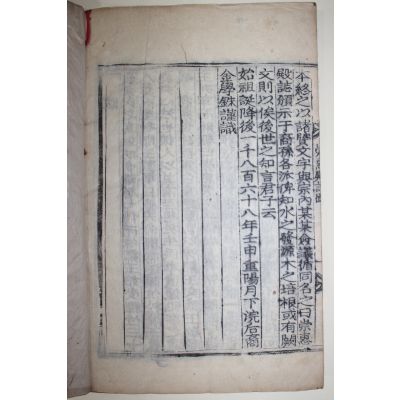 本終之以諸賢文字與宗內某某僉議備同名之曰崇惠
殿誌頒示于裔孫各派俾知水之發源木之培根或有闕
文則以俟後世之知言君子云
始祖誕降後一千八百六十八年壬申重陽月下浣后裔
金學銖謹識